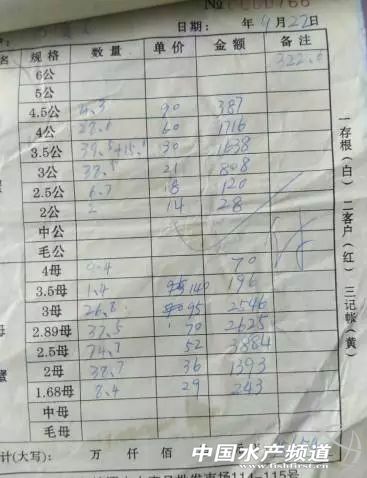 No 0000766
日期： 年 9月22日
名 规格 数量 单价 金额 备注
6公 322.6
5公
4.5公 4.3 90 387
4公 28.6 60 1716
3.5公 30 1638
3公 38.5 21 808
2.5公 6.7 18 120
2公 2 14 28
中公
毛公
4母 70
3.5母 1.4 140 196
3母 26.8 95 2546
2.89母 37.5 70 2625
2.5母 74.7 52 3884
2母 38.7 36 1393
1.68母 8.4 29 243
中母
毛母
计(大写)： 万 仟 佰
一存根（白） 二客户（红） 三记帐（黄）
中国水产频道
www.fishfirst.cn
批发市场114-115号